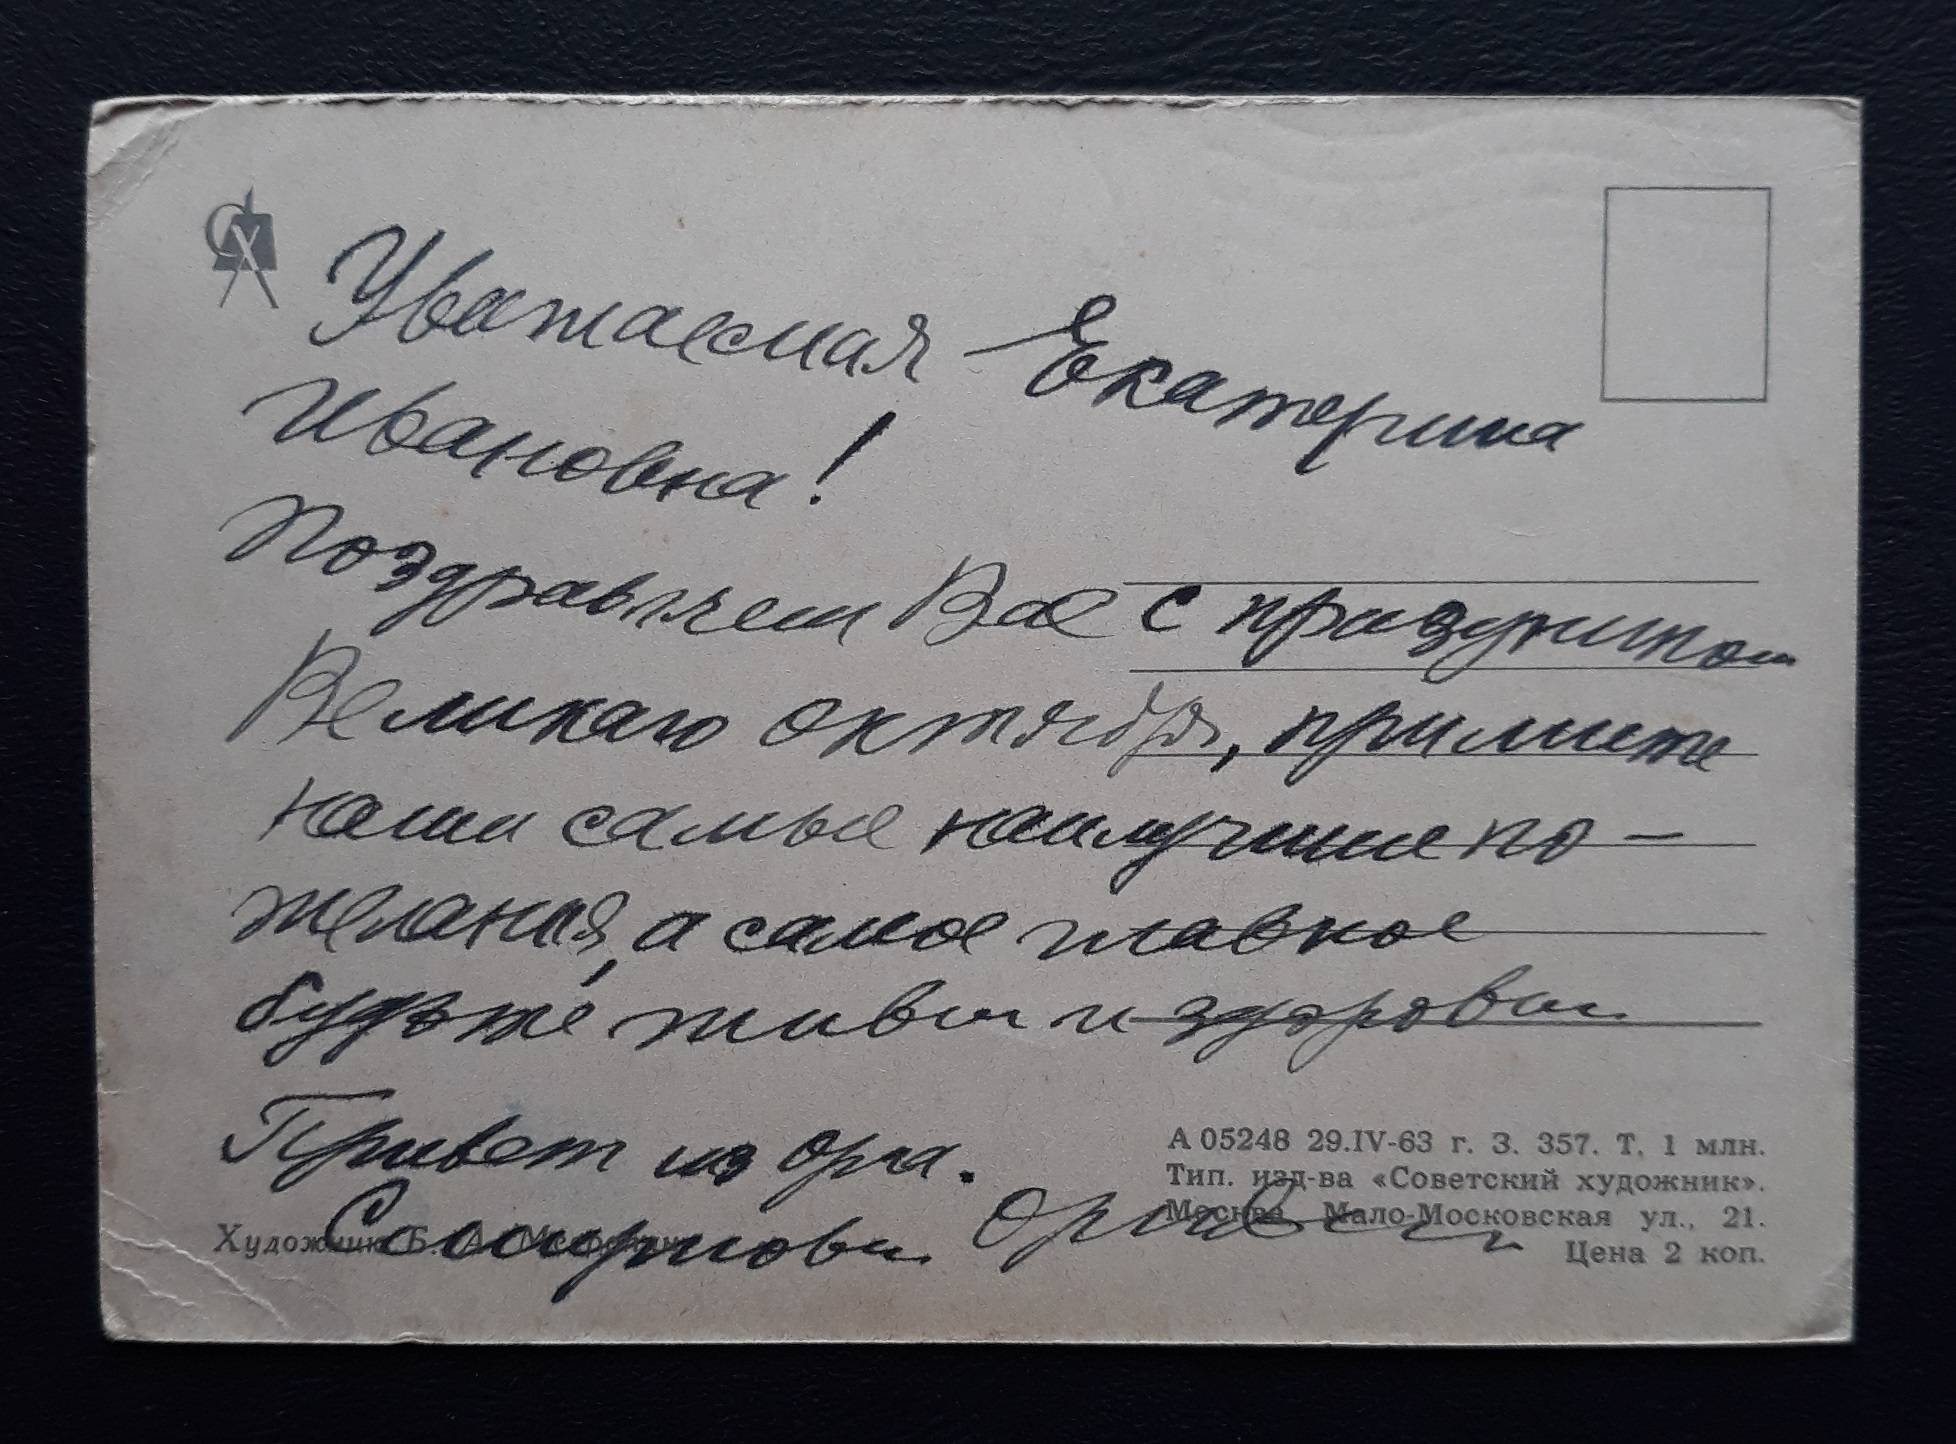 Уважаемая Екатерина
Ивановна!
Поздравляем Вас с праздником
Великаго октября, примите
наши самые наилучшие по-
желания, а самое главное
будьте живы и здоровы
Привет из Орла.
А 05248 29.IV-63 г. З. 357. Т. 1 млн.
Тип. изд-ва «Советский художник».
Москва, Мало-Московская ул., 21.
Цена 2 коп.
Художник Б. А.